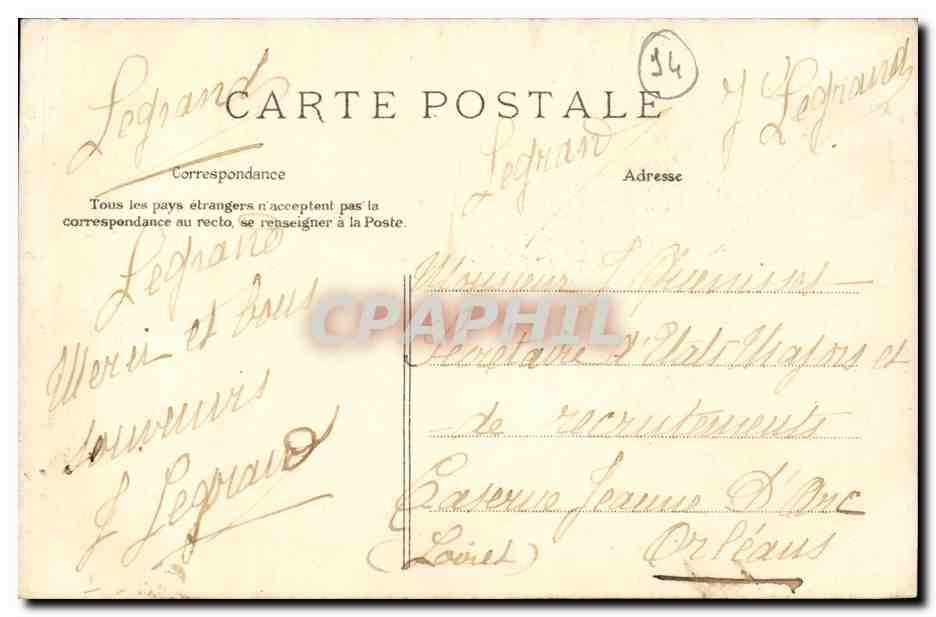 94
Legrand
CARTE POSTALE
Legrand
J Legrand
Correspondance
Adresse
Tous les pays étrangers n'acceptent pas la
correspondance au recto, se renseigner à la Poste.
Legrand
Merci et bons
souvenirs
J Legrand
Monsieur J
Secrétaire d'Etats Majors et
de recrutements
Caserne Jeanne D'Arc
Orléans
(Loiret)
CPAPHIL